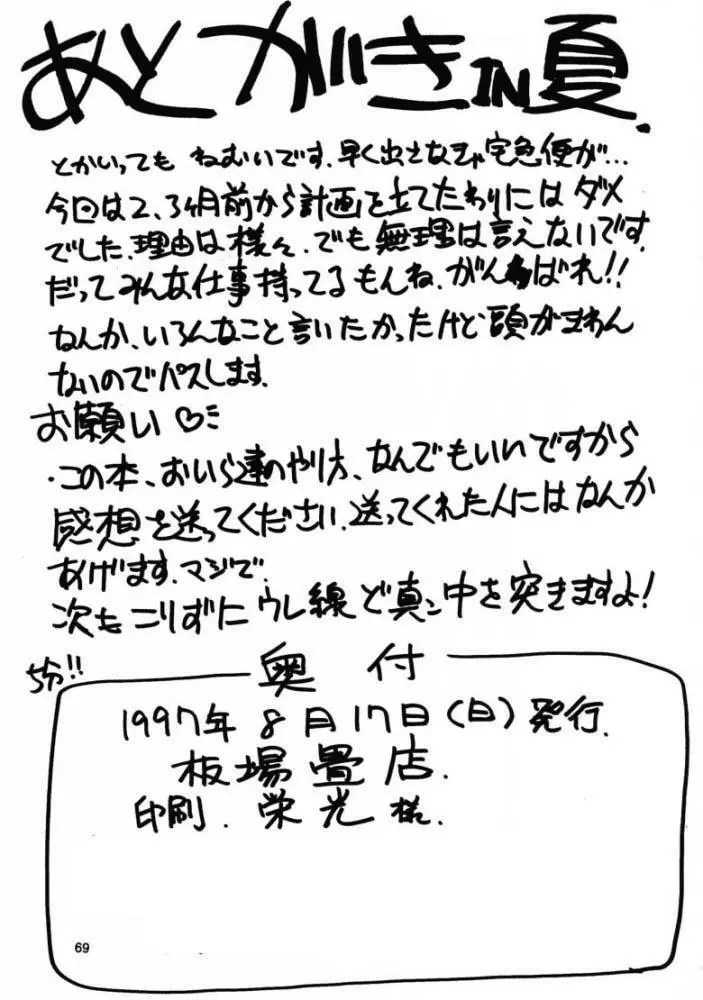 あとがきIN夏.
とかいっても ねむいです.早く出さなきゃ宅急便が…
今回は2、3ヶ月前から計画を立てたわりにはダメ
でした.理由は様々.でも無理は言えないです.
だってみんな仕事持ってるもんね.がんばれ!!
なんか、いろんなこと言いたかったけど頭がまわん
ないのでパスします.
お願い♡
・この本、おいら達のやり方、なんでもいいですから
感想を送ってください.送ってくれた人にはなんか
あげます.マジで.
次もこりずにウレ線ど真ン中を突きますよ!
奥付
1997年8月17日(日)発行.
板場畳店.
印刷.栄光様.
69